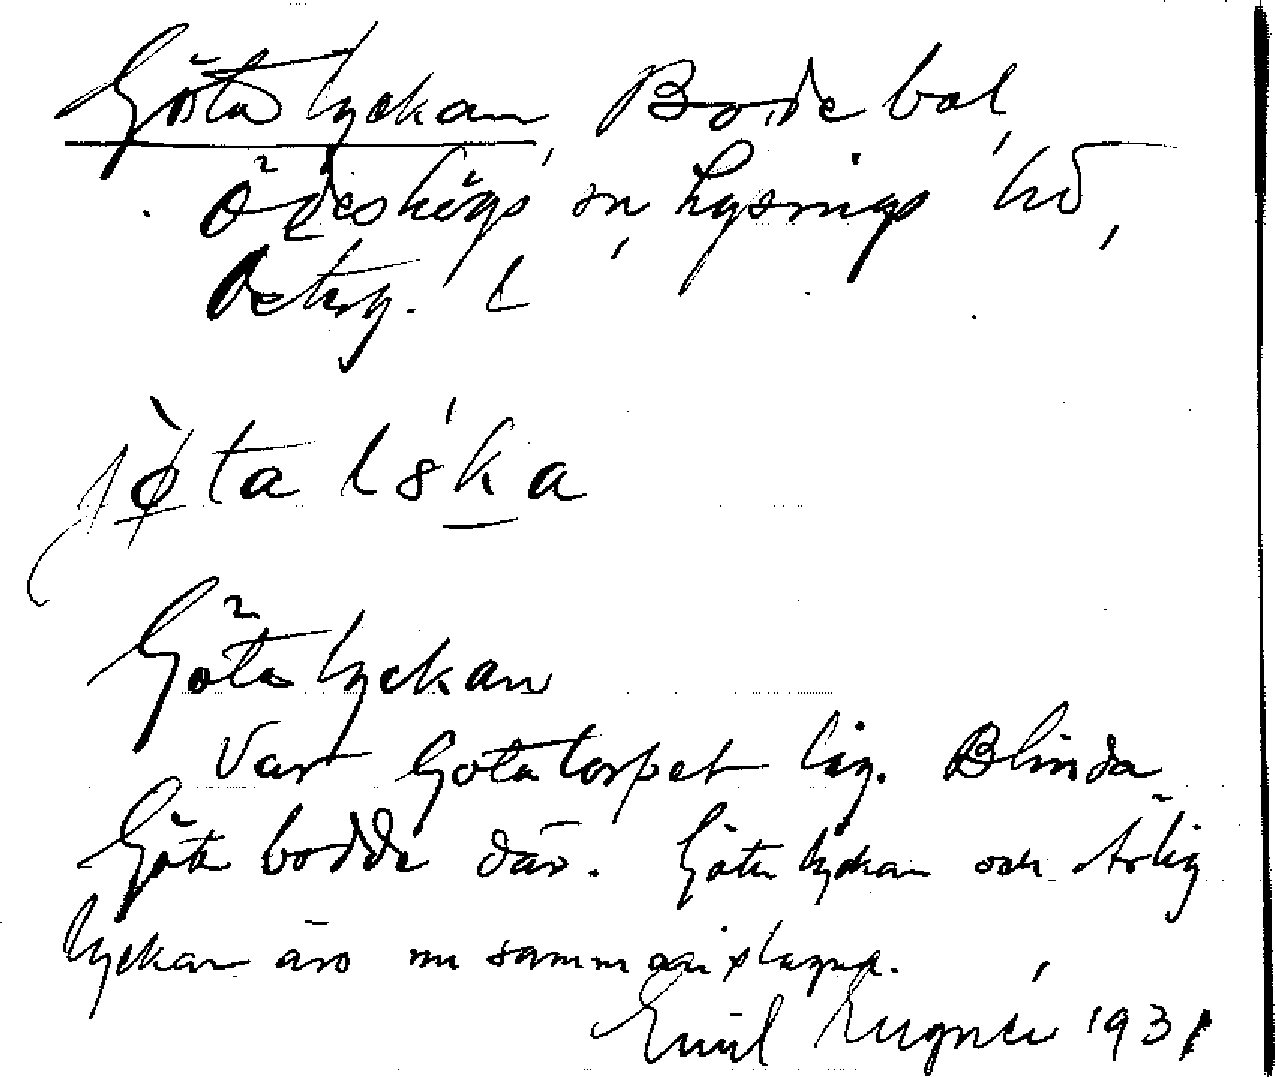 Götalyckan, Bodebol,
Ödeshögs sn, Lysings hd,
Östg. l
jø̀ta lı́ka
Götalyckan
Var Götatorpet låg. Blinda
Göta bodde där. Götalyckan och Ärlig
lyckan äro nu sammanslagna.
Emil Lugnér 1931